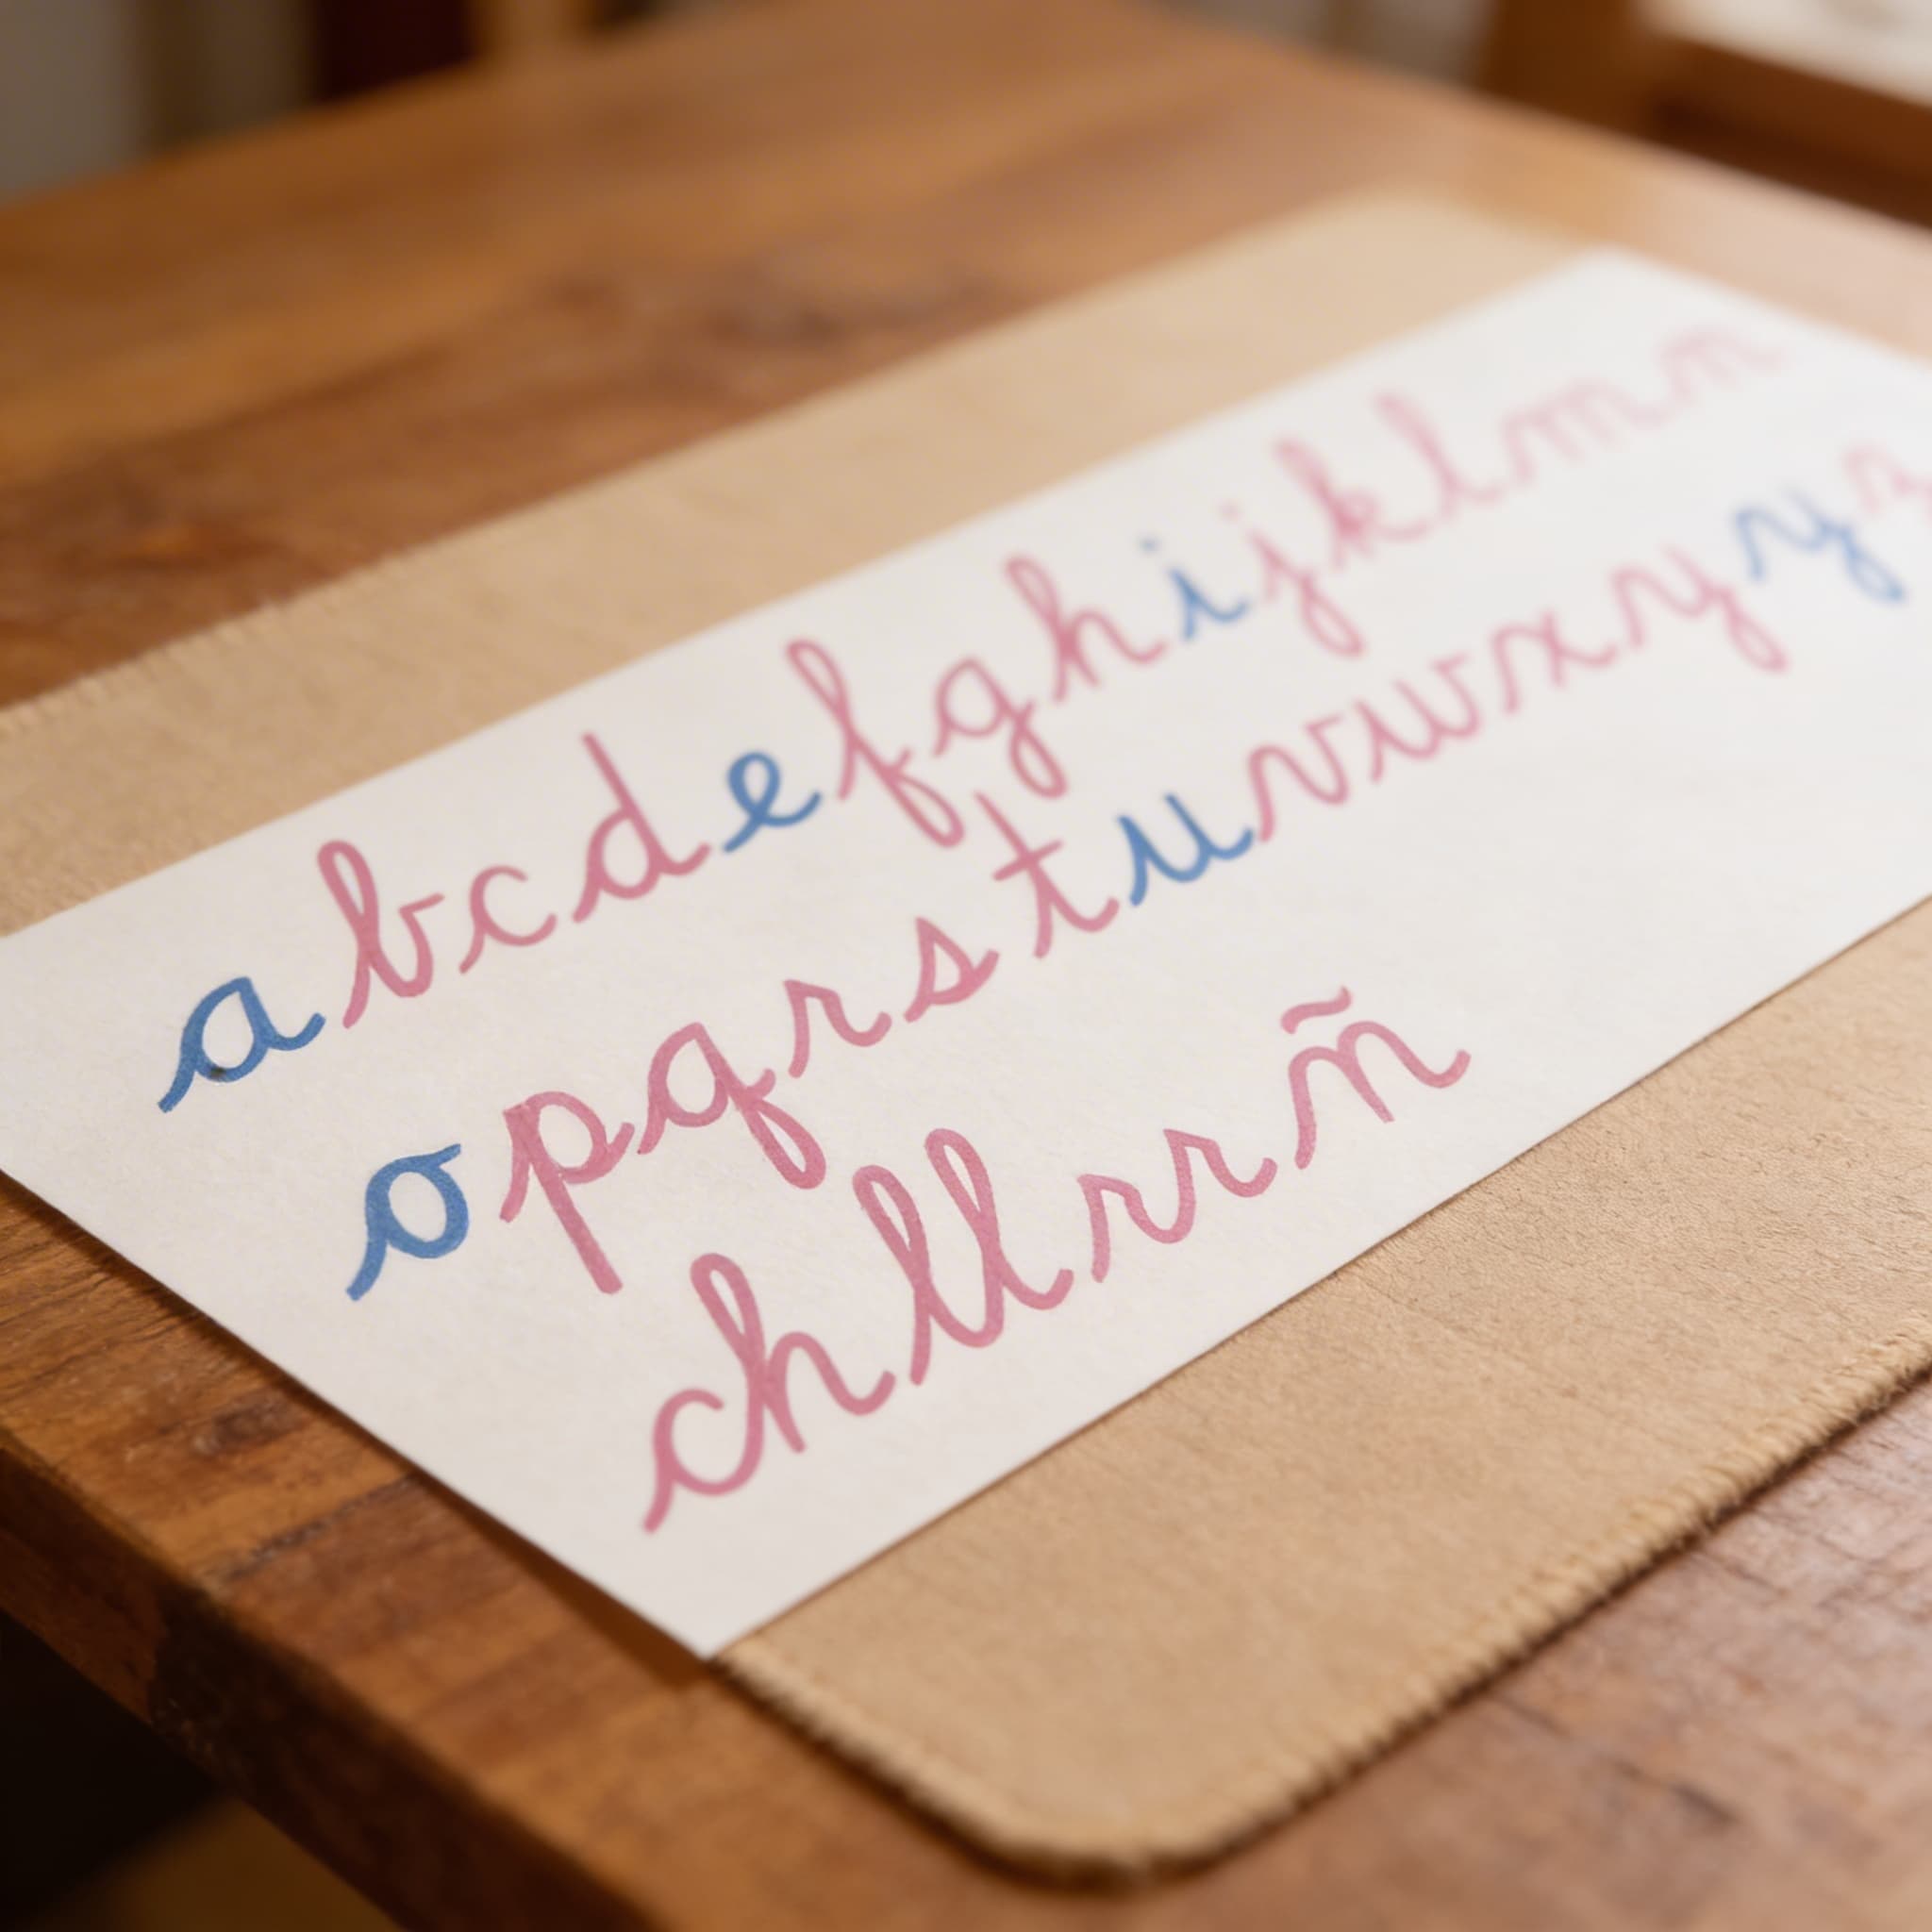 a b c d e f g h i j k l m n
o p q r s t u v w x y y z
ch ll rr ñ